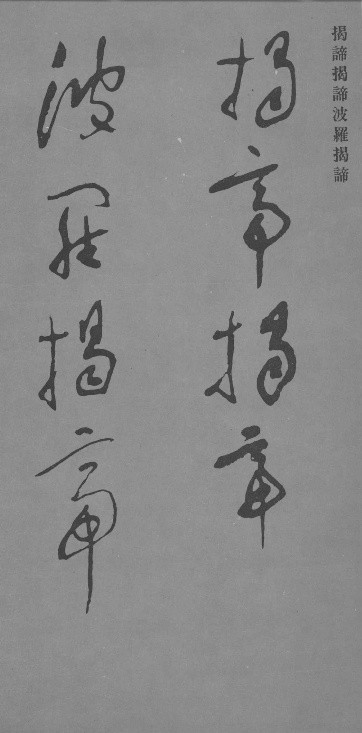 揭諦揭諦波羅揭諦
揭帝揭帝
波羅揭帝